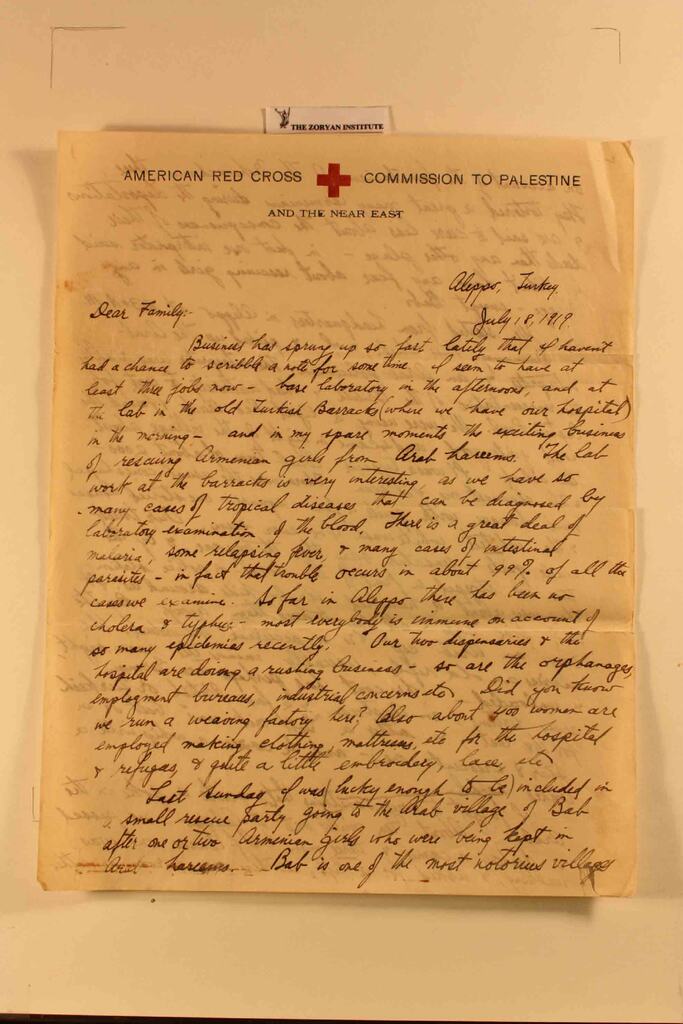 THE ZORYAN INSTITUTE
AMERICAN RED CROSS COMMISSION TO PALESTINE
AND THE NEAR EAST
Aleppo, Turkey.
July 18, 1919.
Dear Family:-
Business has sprung up so fast lately that I haven't
had a chance to scribble a note for some time. I seem to have at
least three jobs now - base laboratory in the afternoons, and at
the lab in the old Turkish Barracks (where we have our hospital)
in the morning - and in my spare moments the exciting business
of rescuing Armenian girls from Arab hareems. The lab
work at the barracks is very interesting, as we have so
many cases of tropical diseases that can be diagnosed by
laboratory examination of the blood. There is a great deal of
malaria, some relapsing fever, & many cases of intestinal
parasites - in fact that trouble occurs in about 99% of all the
cases we examine. So far in Aleppo there has been no
cholera & typhus - most everybody is immune on account of
so many epidemics recently. Our two dispensaries & the
hospital are doing a rushing business - so are the orphanages,
employment bureaus, industrial concerns etc. Did you know
we run a weaving factory here? Also about women are
employed making clothing, mattresses, etc for the hospital
& refugees, & quite a little embroidery, lace, etc.
Last Sunday I was (lucky enough to be) included in
a small rescue party going to the Arab village of Bab
after one or two Armenian girls who were being kept in
Arab hareems. Bab is one of the most notorious villages